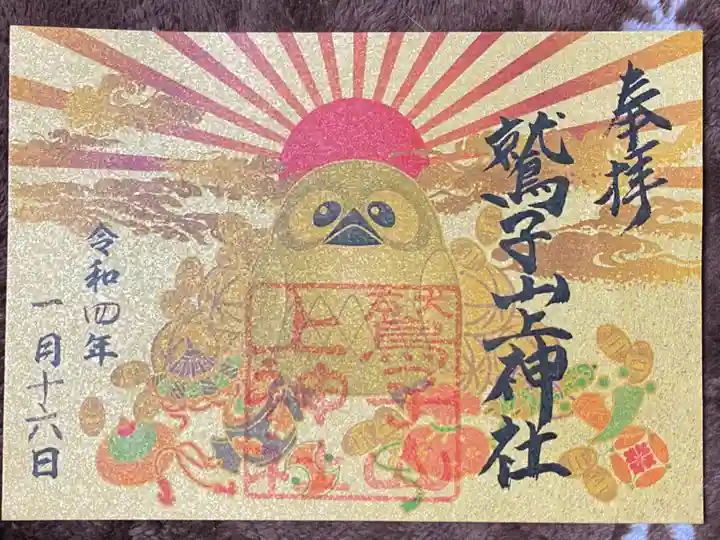 奉拝
鷲子山上神社
令和四年
一月十六日